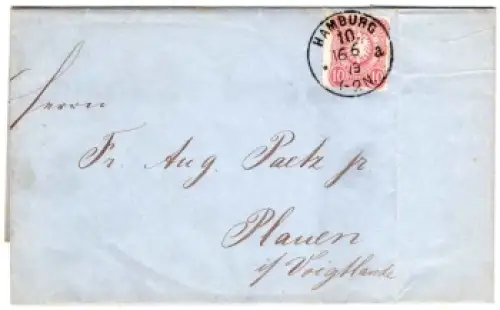 HAMBURG
10.
16 6 a
79
1-2N.
10 10
Herrn
Fr. Aug. Paetz jr
Plauen
i/ Voigtlande